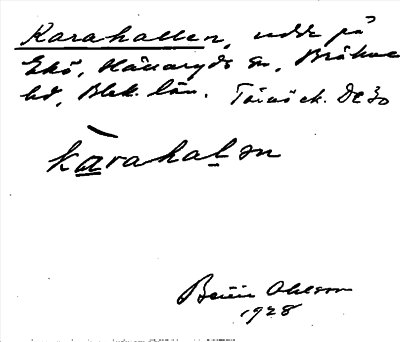 Karahallen, udde på
Ekö, Hällaryds sn, Bräkne
hd, Blek. län. Tärnö ek. bl 30
karahalsn
Ohlsson
1928